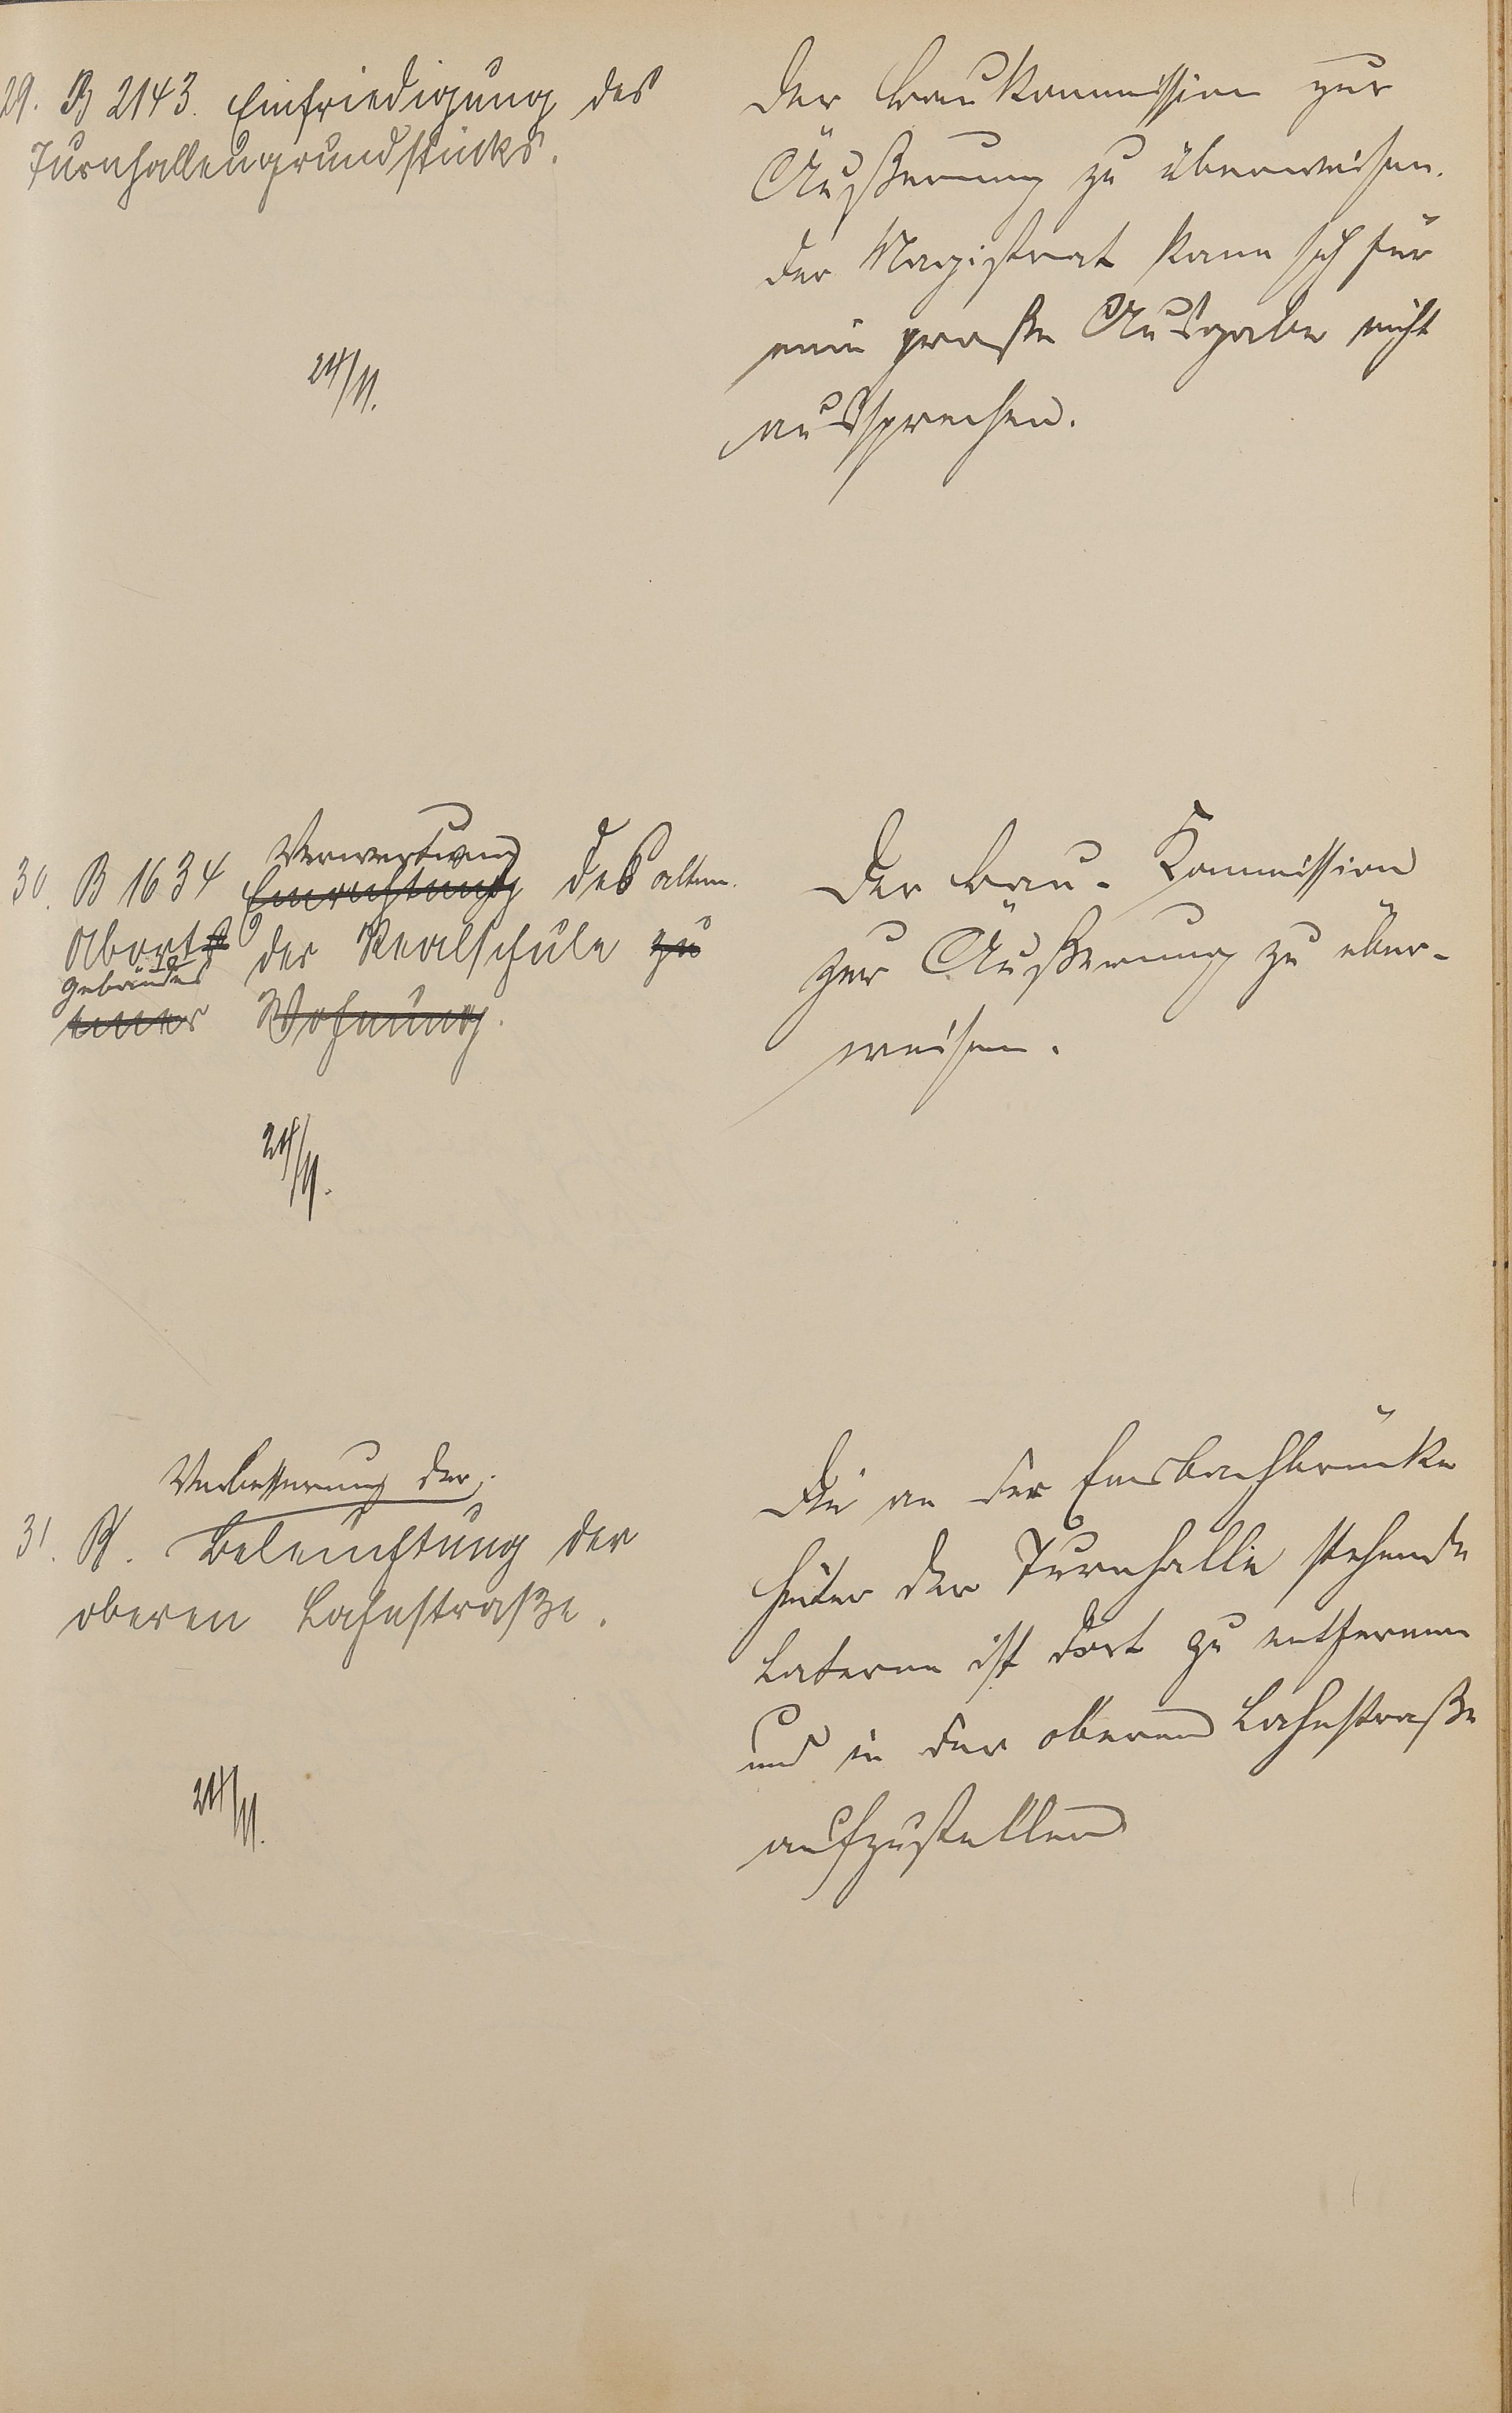 29. B 2143. Einfriedigung des
Turnhallengrundstücks.
24/11.
Der Baukommission zur
Äußerung zu überweisen.
Der Magistrat kann sich für
eine große Ausgabe nicht
aussprechen.
30. B 1634 Verwertung
Einrichtung des alten
Aborts der Realschule zu
gebäudes
einer Wohnung.
24/11.
Der Bau-Kommission
zur Äußerung zu über-
weisen.
Verbesserung der
31. B. Beleuchtung der
oberen Lahnstraße.
24/11.
Die an der Emsbachbrücke
hinter der Turnhalle stehende
Laterne ist dort zu entfernen
und in der oberen Lahnstraße
aufzustellen